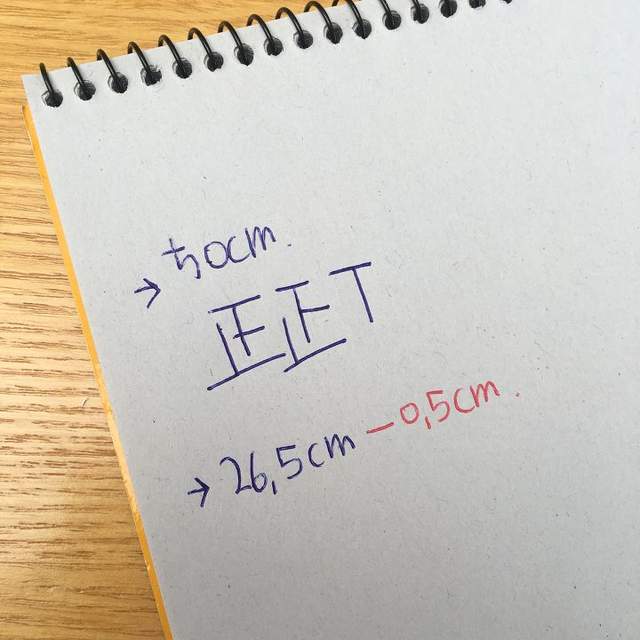 → 50cm.
正正T
→ 26,5cm - 0,5cm.